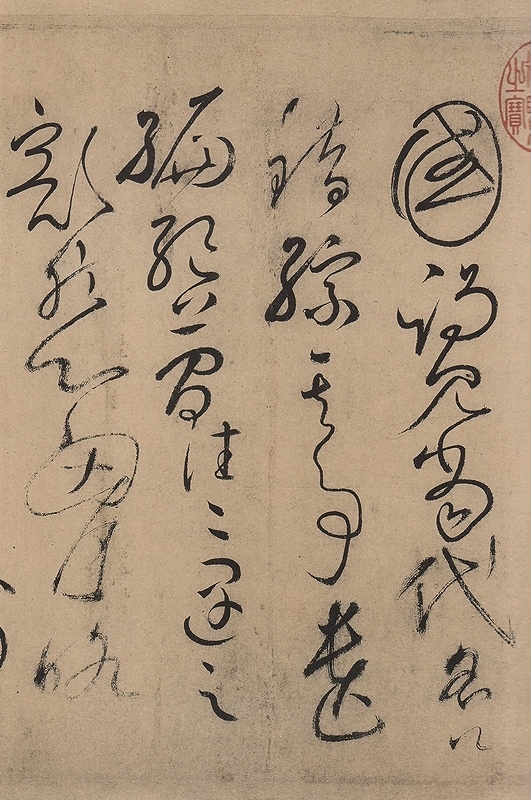 國謁見當代名公
錯綜其事遺
編絕簡往〻遇之
豁然心胸略